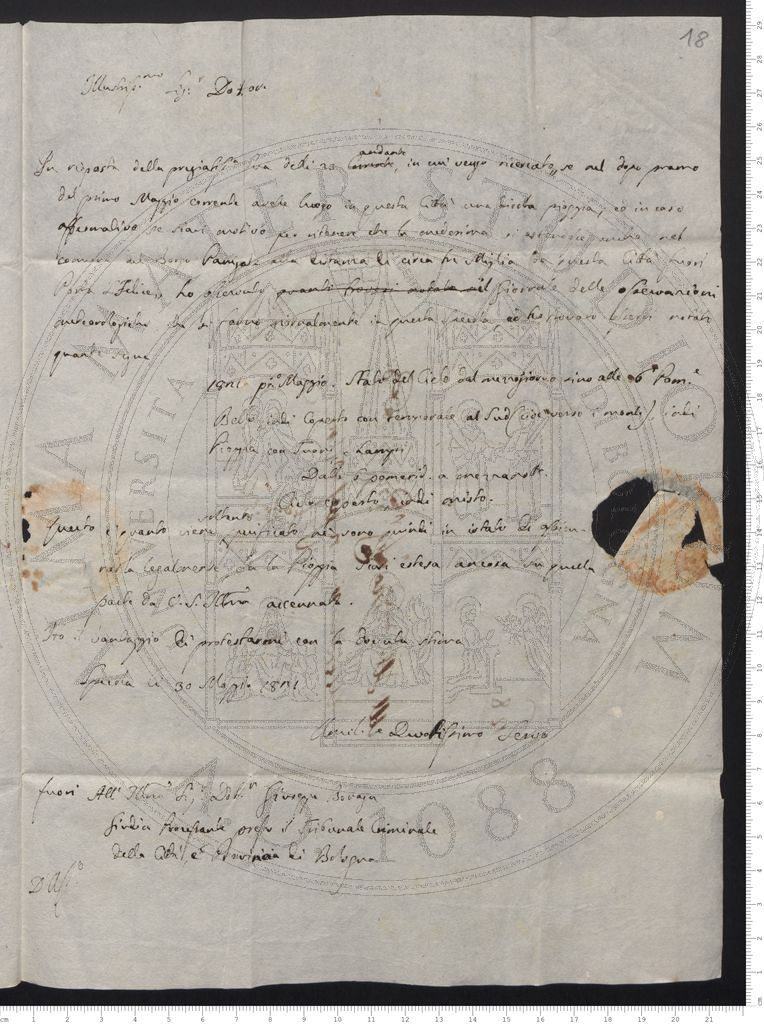 18
Illustriss.mo Sig.r Dottor.
In risposta della pregiatiss.a Sua delli 22 Corrente andante, in cui vengo ricercato, se nel dopo pranzo
del primo Maggio corrente avesse luogo in questa Città una dirotta pioggia, ed in caso
affermativo se siavi motivo per ritenere che la medesima si estendesse anche nel
comune di Borgo Panigale alla distanza di circa tre Miglia da questa Città fuori
Porta S. Felice, ho osservato quanti trovasi notato nel Giornale delle osservazioni
meteorologiche che si fanno giornalmente in questa Specola, ed ho trovato esservi notato
quanto segue
1821 p.mo Maggio. Stato del Cielo dal mezzogiorno sino alle 6 Pom.e
Bello indi Coperto con temporale al Sud (cioè verso i monti), indi
Pioggia con Tuoni e Lampi
Dalle 6 pomerid. a mezzanotte.
Ciel coperto indi misto.
Questo è quanto viene soltanto nè sono quindi in istato di assicu-
rarla legalmente se la Pioggia siasi estesa ancora in quella
parte da V. S. Ill.ma accennata.
Ho il vantaggio di protestarmi con la dovuta stima
Specola li 30 Maggio 1821
Umil.e Devotissimo Servo
fuori All' Ill.mo Sig.r Dott.r Giuseppe
Giudice Processante presso il Tribunale Criminale
della Città, e Provincia di Bologna
ALMA MATER STUDIORUM
UNIVERSITA DI BOLOGNA
A.D. 1088